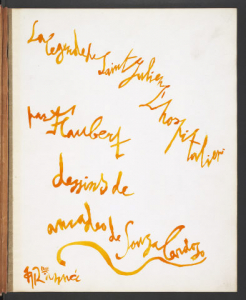 La légende de
Saint Julien
L'hos
pit
talier
par
Flaubert
dessins de
amadeo de Souza Cardoso